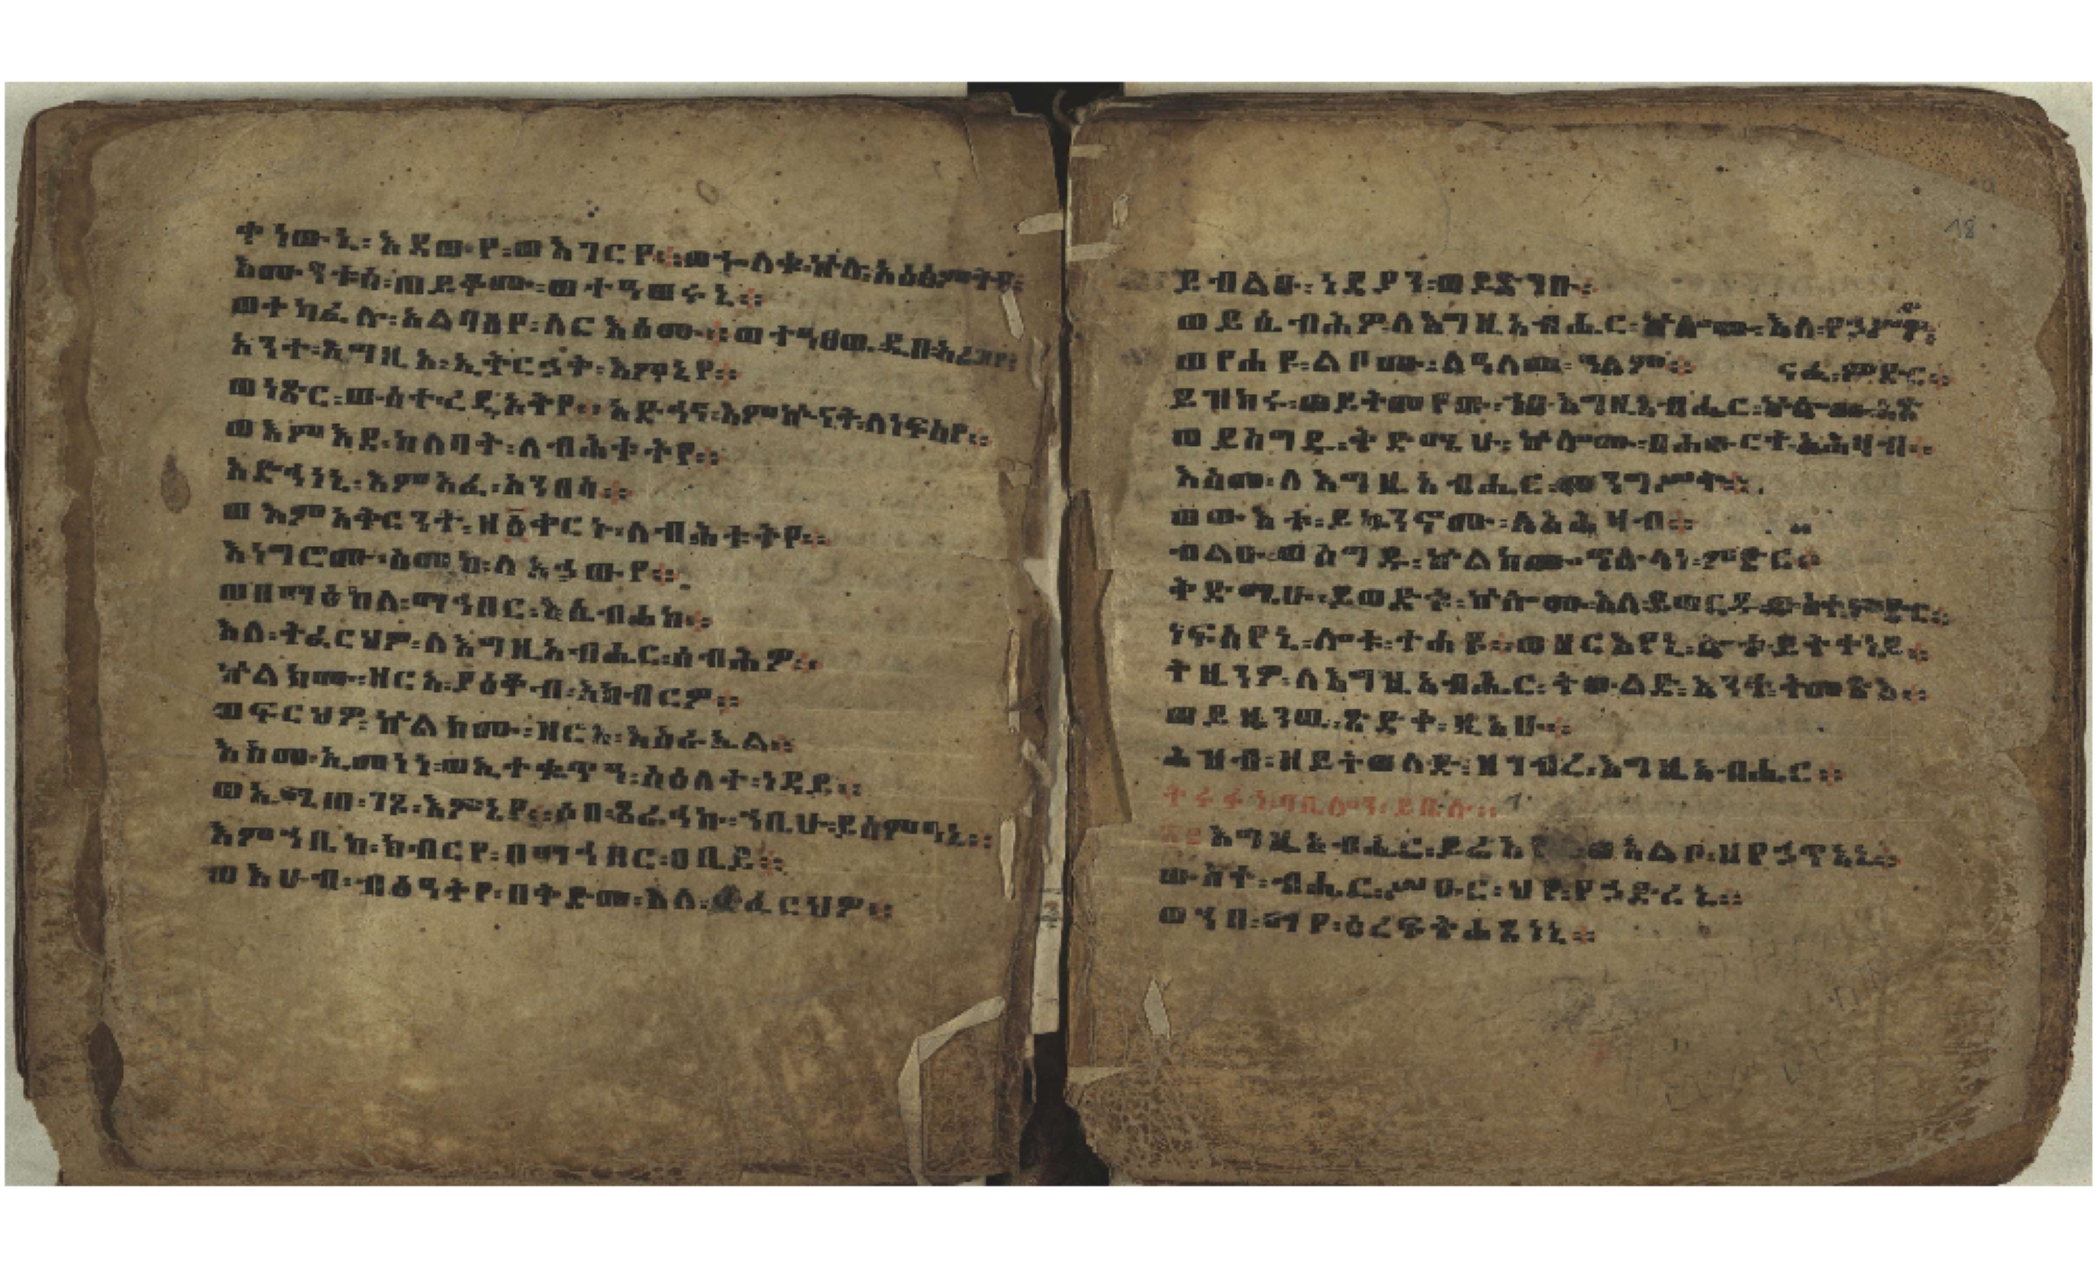 ቀነወኒ፡ እደውየ፡ ወእገርየ፡፡ ወኍለቁ፡ ኵሎ፡ አዕፅምትየ፡፡
እሙንቱሰ፡ ጠይቆሙ፡ ወተዓወሩኒ፡፡
ወተካፈሉ፡ አልባሰየ፡ ለርእሶሙ፡፡ ወተዓፀዉ፡ ዲበ፡ አራዝየ፡፡
አንተ፡ እግዚአ፡ ኢትርኃቅ፡ እምኒየ፡፡
ወነጽር፡ ውስተ፡ ረዲኦትየ፡፡ አድኅና፡ እምኵናት፡ ለነፍስየ፡፡
ወእምእደ፡ ከለባት፡ ለብሕቱትየ፡፡
አድኅነኒ፡ እምአፈ፡ አንበሳ፡፡
ወእምአቅርንት፡ ዘ፩ቀርኑ፡ ለብሕቱትየ፡፡
እነግሮሙ፡ ስመከ፡ ለአኃውየ፡፡
ወበማዕከለ፡ ማኅበር፡ እሴብሐከ፡፡
እለ፡ ትፈርህዎ፡ ለእግዚአብሔር፡ ሰብሕዎ፡፡
ኵልክሙ፡ ዘርአ፡ ያዕቆብ፡ አክብርዎ፡፡
ወፍርህዎ፡ ኵልክሙ፡ ዘርአ፡ እስራኤል፡፡
እስመ፡ ኢመነነ፡ ወኢተቈጥዓ፡ ስዕለተ፡ ነዳይ፡፡
ወኢሜጠ፡ ገጾ፡ እምኒየ፡፡ ሶበ፡ ጸራኅኩ፡ ኀቤሁ፡ ይሰምዓኒ፡፡
እምኀቤከ፡ ክብርየ፡ በማኅበር፡ ዐቢይ፡፡
ወእሁብ፡ ብፅዓትየ፡ በቅድመ፡ እለ፡ ይፈርህዎ፡፡
ይብልዑ፡ ነዳያን፡ ወይጽገቡ፡
ወይሴብሕዎ፡ ለእግዚአብሔር፡ ኵሎሙ፡ እለ፡ የኃሥዎ፡
ወየሐዩ፡ ልቦሙ፡ ለዓለመ፡ ዓለም፡፡ ናፈ፡ ምድር፡፡
ይዝከሩ፡ ወይትመየጡ፡ ኀበ፡ እግዚአብሔር፡ ኵሎሙ፡ አጽ
ወይሰግዱ፡ ቅድሜሁ፡ ኵሎሙ፡ በሐውርተ፡ አሕዛብ፡፡
እስመ፡ ለእግዚአብሔር፡ መንግሥት፡፡
ወውእቱ፡ ይኴንኖሙ፡ ለአሕዛብ፡፡
ብልዑ፡ ወስግዱ፡ ኵልክሙ፡ ጥሉላነ፡ ምድር፡፡
ቅድሜሁ፡ ይወድቁ፡ ኵሎሙ፡ እለ፡ ይወርዱ፡ ውስተ፡ ምድር፡፡
ነፍስየኒ፡ ሎቱ፡ ተሐዩ፡፡ ወዘርእየኒ፡ ሎቱ፡ ይትቀነይ፡፡
ትዜንዎ፡ ለእግዚአብሔር፡ ትውልድ፡ እንተ፡ ትመጽእ፡፡
ወይዜንዉ፡ ጽድቀ፡ ዚአሁ፡፡
ሕዝብ፡ ዘይትወለድ፡ ዘገብረ፡ እግዚአብሔር፡፡
እግዚአብሔር፡ ይሬእየኒ፡ ወአልቦ፡ ዘየኃጥአኒ፡፡
ውስተ፡ ብሔር፡ ሥዑር፡ ህየ፡ የኃድረኒ፡፡
ወኀበ፡ ማየ፡ ዕረፍት፡ ሐፀነኒ፡፡